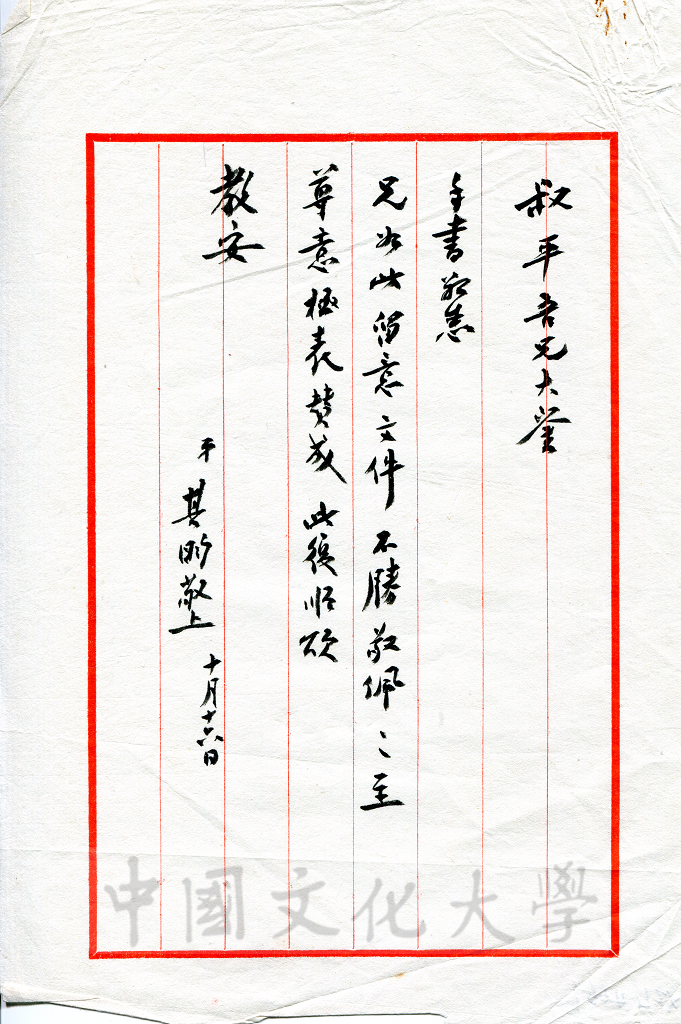 叔平吾兄大鑒
手書敬悉
兄如此留意文件不勝敬佩之至
尊意極表贊成此復順頌
教安
弟其昀敬上
十月十六日
中國文化大學